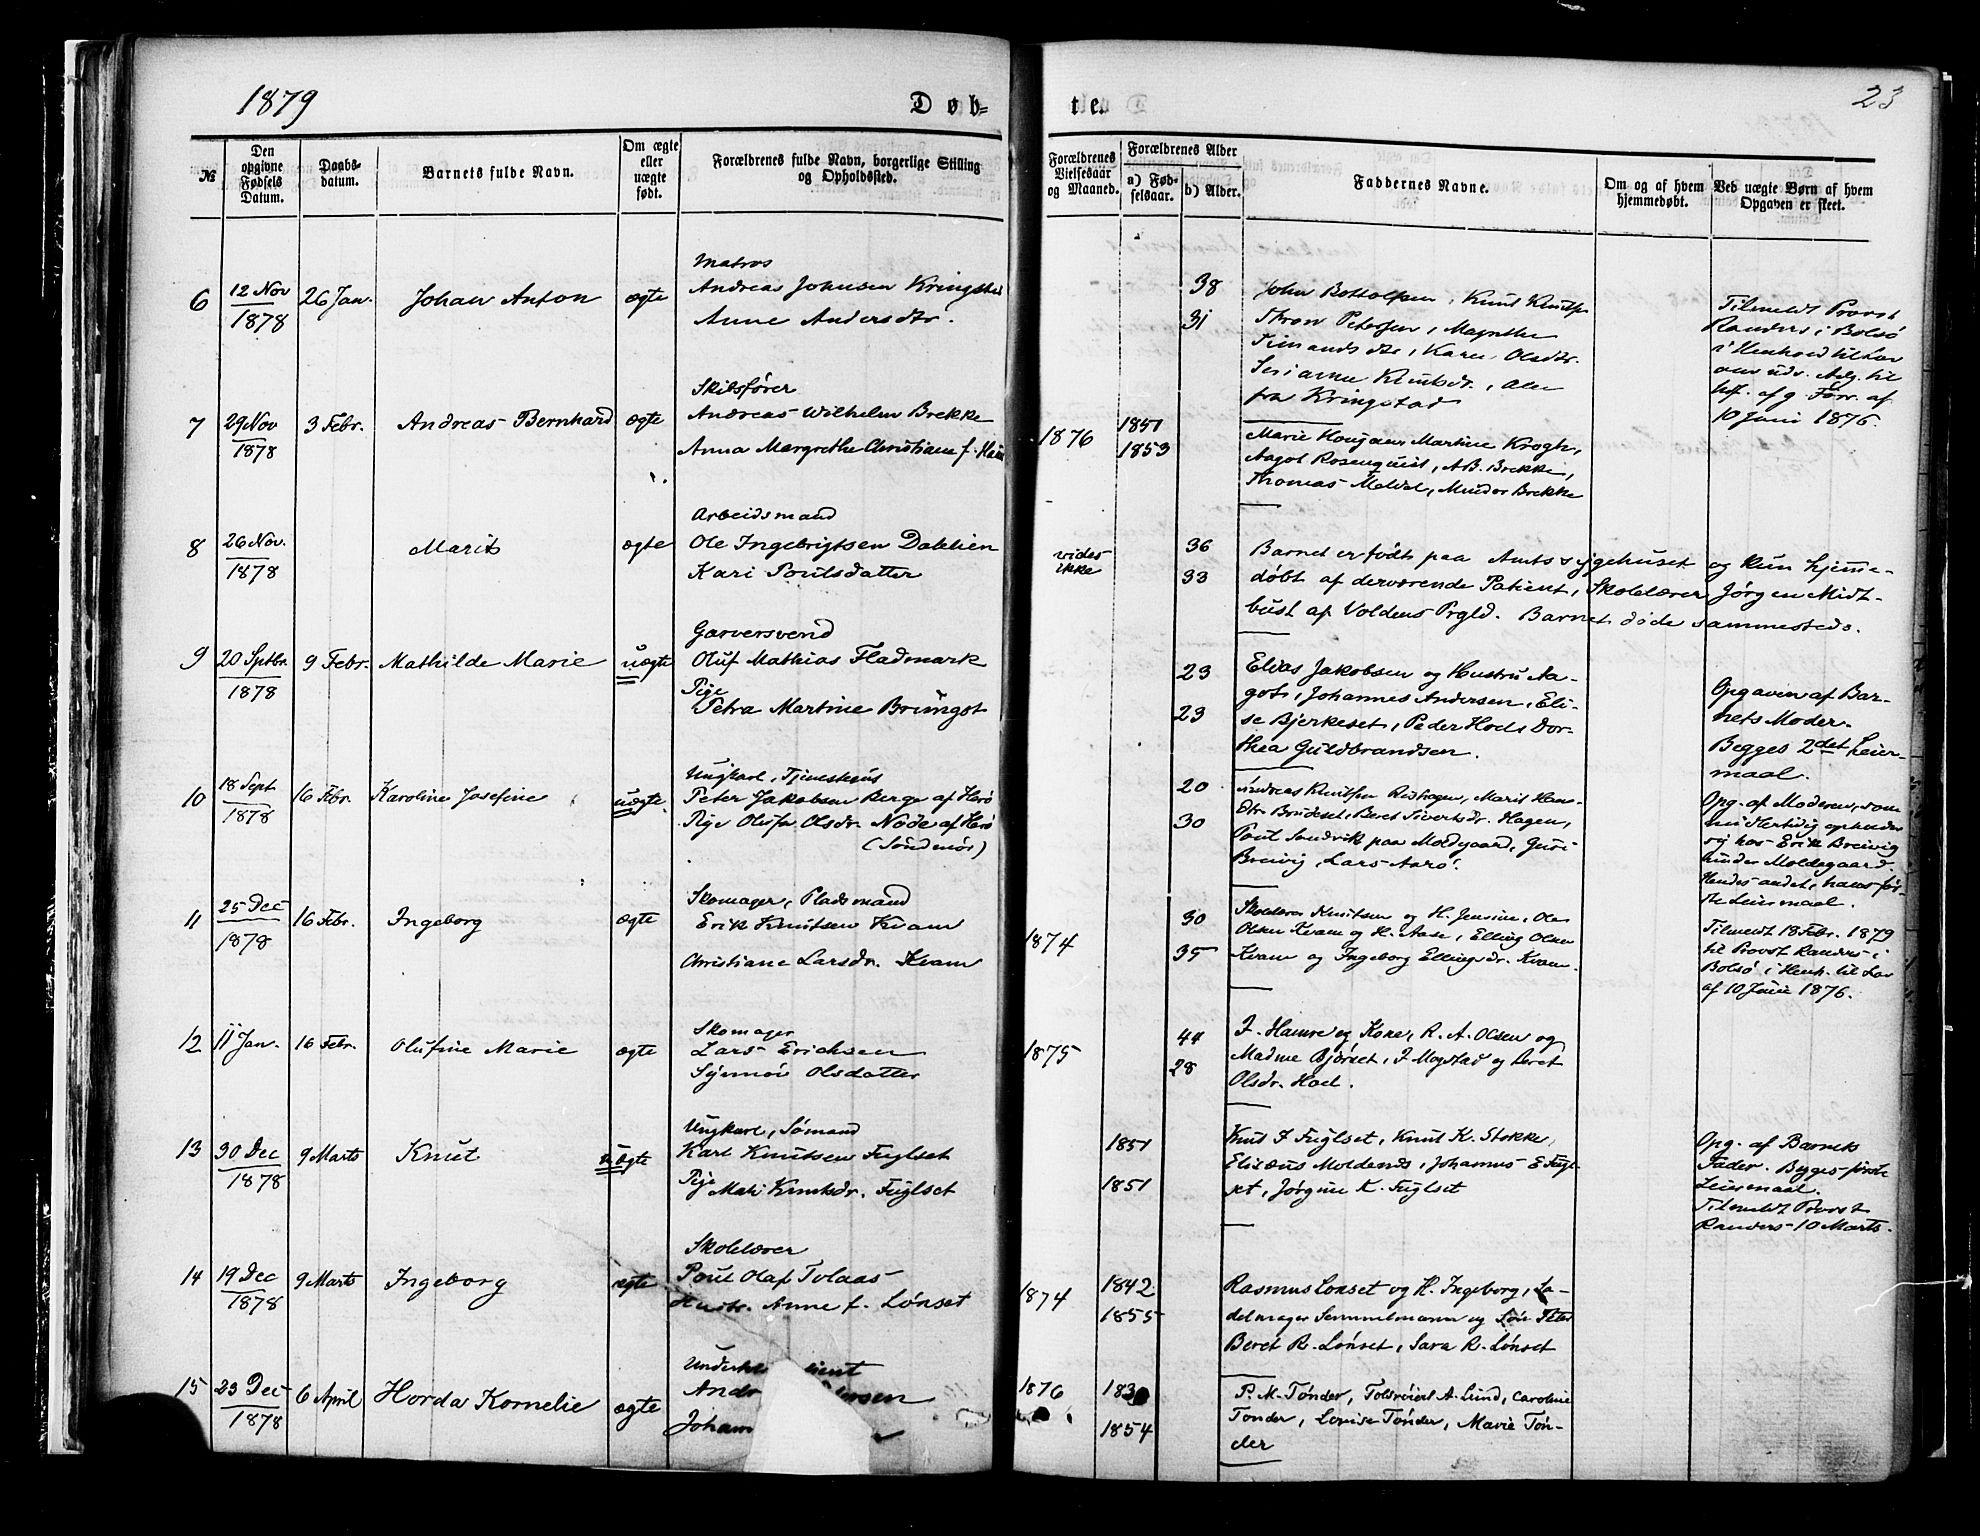 1879
Døb-
№
Den opgivne Fødsels Datum.
Daabs-datum.
Barnets fulde Navn.
Om ægte eller uægte født.
Forældrenes fulde Navn, borgerlige Stilling og Opholdssted.
6
12 Nov 1878
26 Jan.
Johan Anton
ægte
Matros
Andreas Johnsen Kringstad
Anne Andersdtr.
7
29 Nov 1878
3 Febr.
Andreas Bernhard
ægte
Skibsfører
Andreas Wilhelm Brekke
Anna Margrethe Christiane f.
8
26 Nov. 1878
Marit
ægte
Arbeidsmand
Ole Ingebrigtsen Dahlien
Kari Poulsdatter
9
20 Septbr. 1878
9 Febr.
Mathilde Marie
uægte
Garversvend
Oluf Mathias Fladmark
Pige
Petra Martine Brungot
10
18 Sept 1878
16 Febr.
Karoline Josefine
uægte
Ungkarl, Tjenesthus
Peter Jakobsen Berge af Herø
Pige Olufa Olsdr. Node af Herø
(Søndmør)
11
25 Dec 1878
16 Febr.
Ingeborg
ægte
Skomager, Pladsmand
Erik Knutsen Kvam
Christiane Larsdr. Kvam
12
11 Jan.
16 Febr.
Olufine Marie
ægte
Skomager
Lars Erichsen
Synnøv Olsdatter
13
30 Dec 1878
9 Marts
Knut
uægte
Ungkarl, Sømand
Karl Knutsen Fuglset
Pige
Mali Knutsdr. Fuglset
14
19 Dec 1878
9 Marts
Ingeborg
ægte
Skolelærer
Poul Olaf Tolaas
Hustr. Anne f. Lønset
15
23 Dec 1878
6 April
Horda Kornelie
ægte
Andr
Joham
ten
23
Forældrenes Vielsesaar og Maaned.
Forældrenes Alder
a) Fød-selsaar.
b) Alder.
Faddernes Navne.
Om og af hvem hjemmedøbt.
Ved uægte Børn af hvem Opgaven er skeet.
38
31
John Bottolfsen, Knut Knuts
Thron Petersen, Magnthe
Simonds dtr, Karen Olsdtr.
Serianne Knutsdr., Alle
fra Kringstad
Tilmeldt Provst
Randers i Bolsø
i Henhold til Lov
om udv. Adg. til
af 9. Forr. af
10 Juni 1876.
1876
1851
1853
Marie Martine Krogh,
Aagot Rosenquist, A B. Brekke,
Thomas Meldal, Mindor Brekke
vides ikke
36
33
Barnet er født paa Amtssygehuset og kun hjemme-
døbt af derværende Patient, Skolelærer Jørgen Midt-
bust af Voldens Prgld. Barnet døde sammesteds.
23
23
Elias Jakobsen og Hustru Aa-
got, Johannes Andersen, Eli-
se Bjerkeset, Peder Hods Dor-
thea Guldbrandsen.
Opgaven af Bar-
nets Moder.
Begges 2det Leier-
maal.
20
30
Andreas Knutsen Rødhagen, Marit Hans-
dtr Brudeset, Beret Sivertsdr. Hagen,
Poul Sandvik paa Moldgaard, Guri
Breivig, Lars Aarø.
Opg. af Moderen, som
midlertidig opholder
sig hos Erik Breivig
under Moldegaard.
Hendes andet, hans før-
ste Leiermaal.
1874
30
35
Skolelærer Knutsen og H. Jensine, Ole
Olsen Kvam og H. Aase, Elling Olsen
Kvam og Ingeborg Ellingsdr. Kvam.
Tilmeldt 18 Febr. 1879
til Provst Randers i
Bolsø i Henh. til Lov
af 10 Juni 1876.
1875
44
28
J. Hamre og Kone, R. A. Olsen og
Madme Bjørset, J Mogstad og Beret
Olsdr. Hoel.
1851
1851
Knud J Fuglset, Knut K. Stokke,
Elizæus Moldenæs, Johannes E Fugl-
set, Jørgine K. Fuglset
Opg. af Barnets
Fader. Begges første
Leiermaal.
Tilmeldt Provst
Randers 10 Marts.
1874
1842
1855
Rasmus Lonset og H. Ingeborg, Sa-
delmager Semmelmann og
Beret R. Lønset, Sara R. Lønset
1876
1854
P. M. Tønder, A. Lund, Caroline
Tonder, Lovise Tønder, Marie Tøn-
der